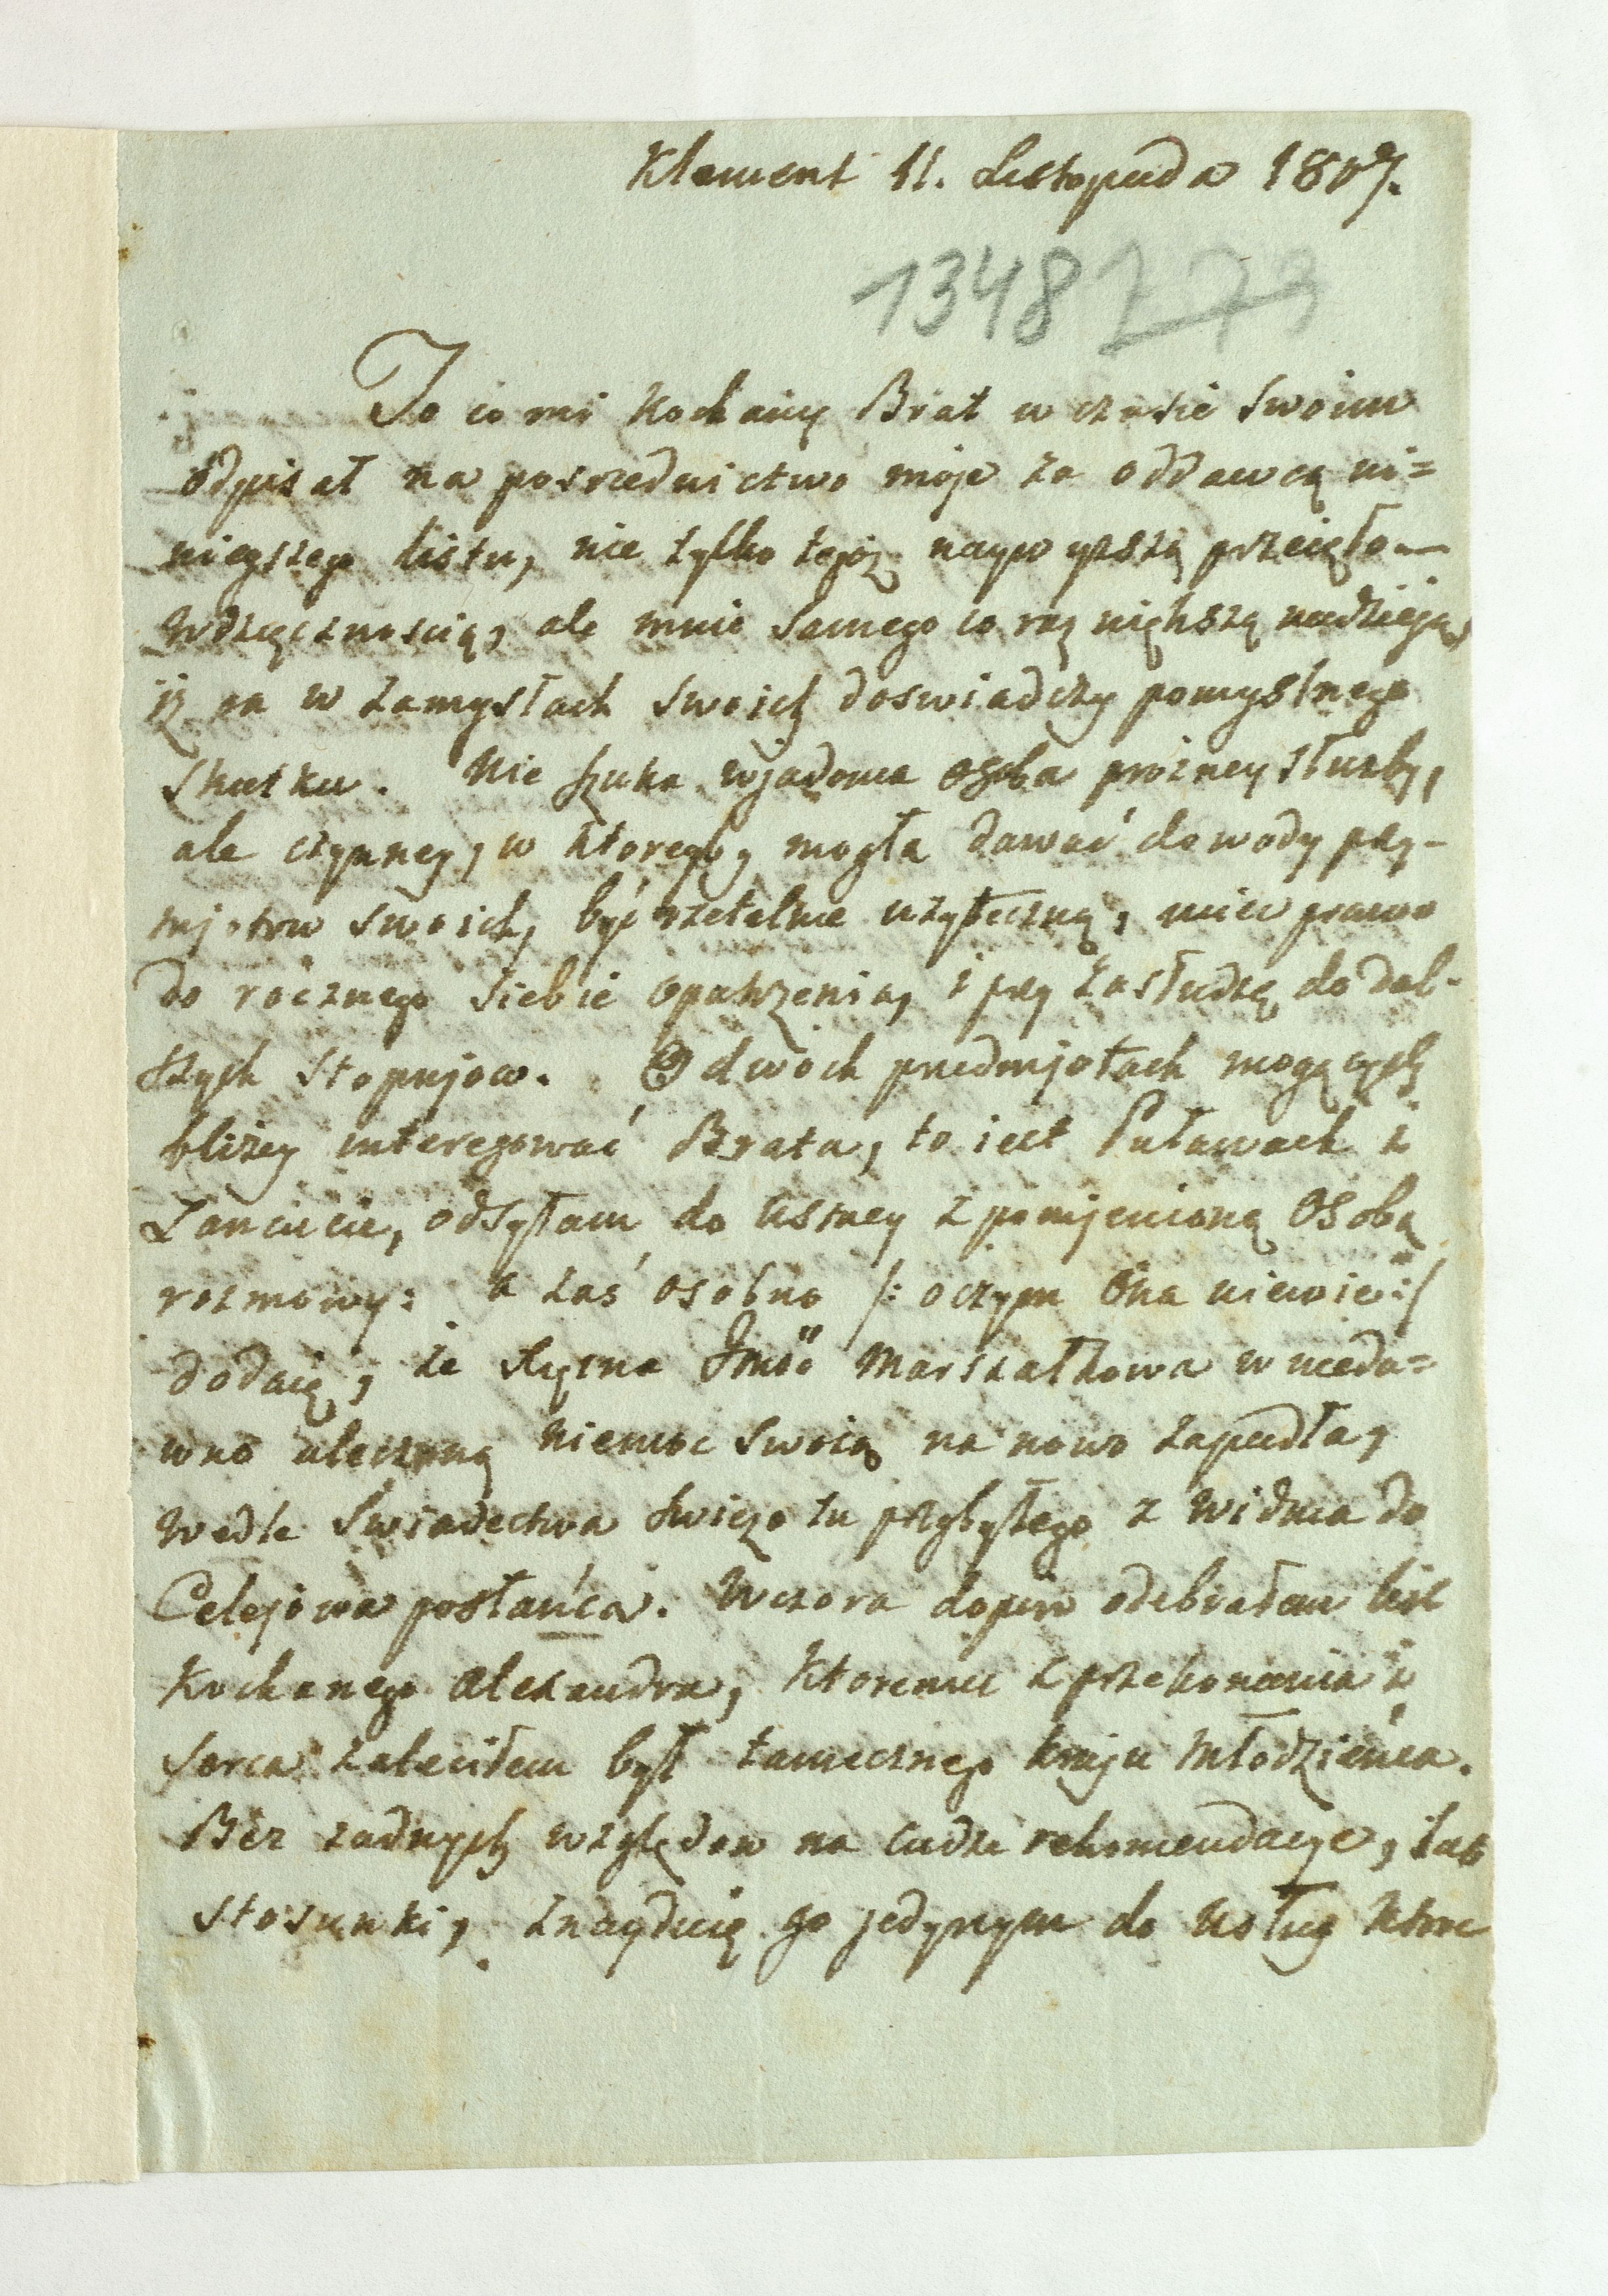 Klement 11. Listopada 1807.
1348 279
To co mi kochany Brat w czasie swoim
odpisał na posrzednictwo moje za oddawcą ni=
nieyszego listu, nie tylko tegóż naywyższą przeięło
wdzięcznoscią, ale mnie samego co raz większą nadzieją,
iż on w zamysłach swoich doswiadczy pomyslnego
skutku. Nie szuka wjadoma osoba prożney służby,
ale czynney, w ktoreyby mogła dawać dowody przy-
mjotow swoich, być rzetelnie użyteczną, mieć prawo
do rocznego siebie opatrzenia, i przy zasłudze do dal-
szych stopnjow. O dwoch przedmjotach mogących
bliżey interesować Brata, to iest Puławach i
Łancucie, odsyłam do ustney z pomjenioną Osobą
rozmowy: a zaś osobno /: o czym Ona niewie :/
dodaię, że Xiężna Jmść Marszałkowa w nieda=
wno uleczoną niemoc swoią na nowo zapadła,
wedle świadectwa świeżo tu przybyłego z Widnia do
Celejowa posłańca. Wczora dopiro odebrałem list
Kochanego Alexandra, ktoremu z przekonania i
serca zaleciłem był tamecznego kraju młodzieńca.
Bez żadnych względow na cudze rekomendacye, lub
stosunki, znayduię go jedynym do usług